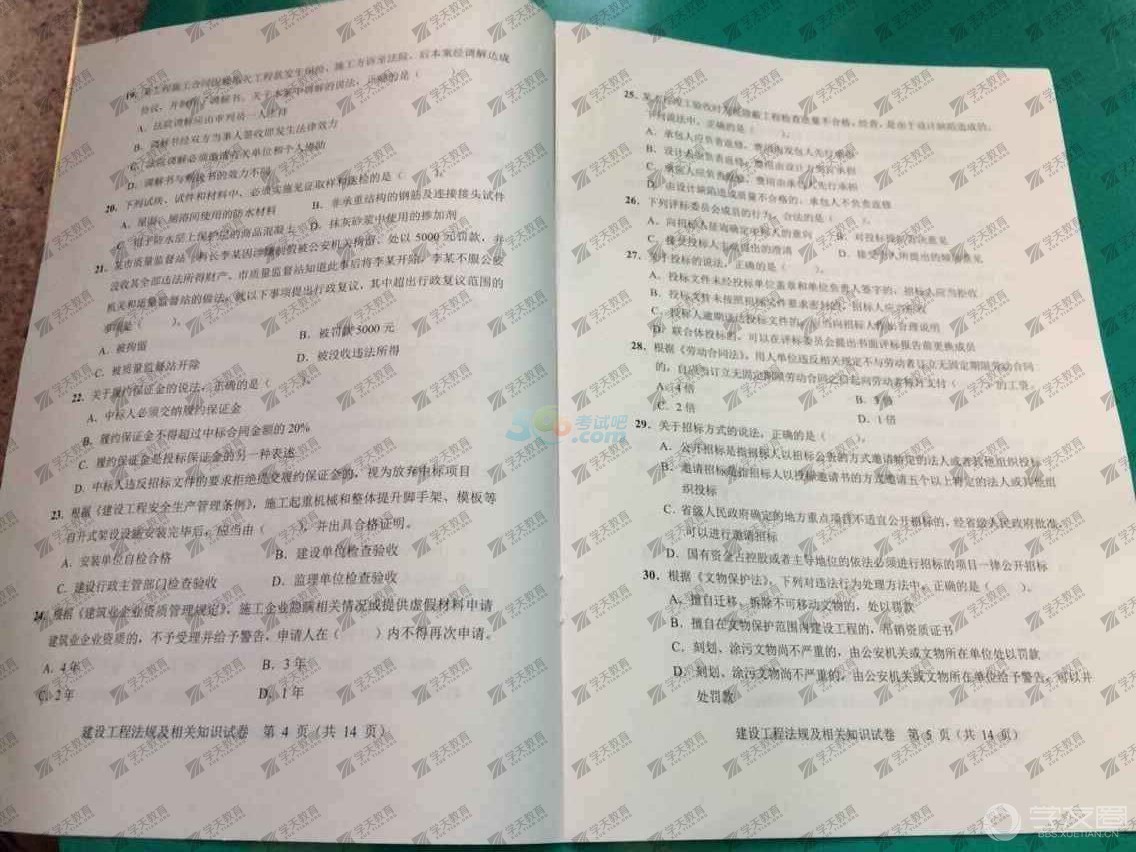 19. 某工程施工合同履行
施工方诉至法院，后本案经调解达成
协议，并制作了调解书。关于本案中调解的说法，正确的是（
A. 法院调解应由审判员一人主持
B. 调解书经双方当事人签收即发生法律效力
C. 法院调解必须邀请有关单位和个人协助
D. 调解书与判决书的效力不同
20. 下列试块、试件和材料中，必须实施见证取样和送检的是（　　）。
A. 屋面、厕浴间使用的防水材料　B. 非承重结构的钢筋及连接接头试件
C. 用于防水层上保护层的商品混凝土　D. 抹灰砂浆中使用的掺加剂
21. 某市质量监督站
长李某因
被公安机关拘留、处以 5000 元罚款，并
没收其全部违法所得财产、市质量监督站知道此事后将李某开除，李某不服公安
机关和质量监督站的做法，就以下事项提出行政复议，其中超出行政复议范围的
事项是（　　）。
A. 被拘留　B. 被罚款 5000 元
C. 被质量监督站开除　D. 被没收违法所得
22. 关于履约保证金的说法，正确的是（　　）。
A. 中标人必须交纳履约保证金
B. 履约保证金不得超过中标合同金额的 20%
C. 履约保证金是投标保证金的另一种表述
D. 中标人违反招标文件的要求拒绝提交履约保证金的，视为放弃中标项目
23. 根据《建设工程安全生产管理条例》，施工起重机械和整体提升脚手架、模板等
自升式架设设施安装完毕后，应当由（　　），并出具合格证明。
A. 安装单位自检合格　B. 建设单位检查验收
C. 建设行政主管部门检查验收　D. 监理单位检查验收
24. 根据《建筑业企业资质管理规定》，施工企业隐瞒相关情况或提供虚假材料申请
建筑业企业资质的，不予受理并给予警告，申请人在（　　）内不得再次申请。
A. 4 年　B. 3 年
C. 2 年　D. 1 年
建设工程法规及相关知识试卷　第 4 页（共 14 页）
25. 某工程竣工验收时发现隐蔽工程检查质量不合格，经查，是由于设计缺陷造成的。
下列说法中，正确的是（　　）。
A. 承包人应负责返修，费用由发包人先行承担
B. 设计人应负责返修，费用由设计方先行承担
C. 承包人应负责返修，费用由承包人先行承担
D. 由设计缺陷造成质量不合格的，承包人不负责返修
26. 下列评标委员会成员的行为，合法的是（　　）。
A. 向招标人征询确定中标人的意向　B. 对投标
C. 接受投标人主动提出的澄清　D. 接受
27. 关于投标的说法，正确的是（　　）。
A. 投标文件未经投标单位盖章和单位负责人签字的，招标人应当拒收
B. 投标文件未按照招标文件要求密封的，招标人应当拒收
C. 投标人逾期送达投标文件的，应当向招标人作出合理说明
D. 联合体投标的，可以在评标委员会提出书面评标报告前更换成员
28. 根据《劳动合同法》，用人单位违反相关规定不与劳动者订立无固定期限劳动合同
的，自应当订立无固定期限劳动合同之日起向劳动者每月支付（　　）的工资。
A. 4 倍　B. 3 倍
C. 2 倍　D. 1 倍
29. 关于招标方式的说法，正确的是（　　）。
A. 公开招标是指招标人以招标公告的方式邀请特定的法人或者其他组织投标
B. 邀请招标是指招标人以投标邀请书的方式邀请五个以上特定的法人或其他组
织投标
C. 省级人民政府确定的地方重点项目不适宜公开招标的，经省级人民政府批准，
可以进行邀请招标
D. 国有资金占控股或者主导地位的依法必须进行招标的项目一律公开招标
30. 根据《文物保护法》，下列对违法行为处理方法中，正确的是（　　）。
A. 擅自迁移、拆除不可移动文物的，处以罚款
B. 擅自在文物保护范围内建设工程的，吊销资质证书
C. 刻划、涂污文物尚不严重的，由公安机关或文物所在单位处以罚款
D. 刻划、涂污文物尚不严重的，由公安机关或文物所在单位给予警告，可以并
处罚款
建设工程法规及相关知识试卷　第 5 页（共 14 页）
学天教育
考试吧
.com
学友圈
BBS.XUETIAN.CN